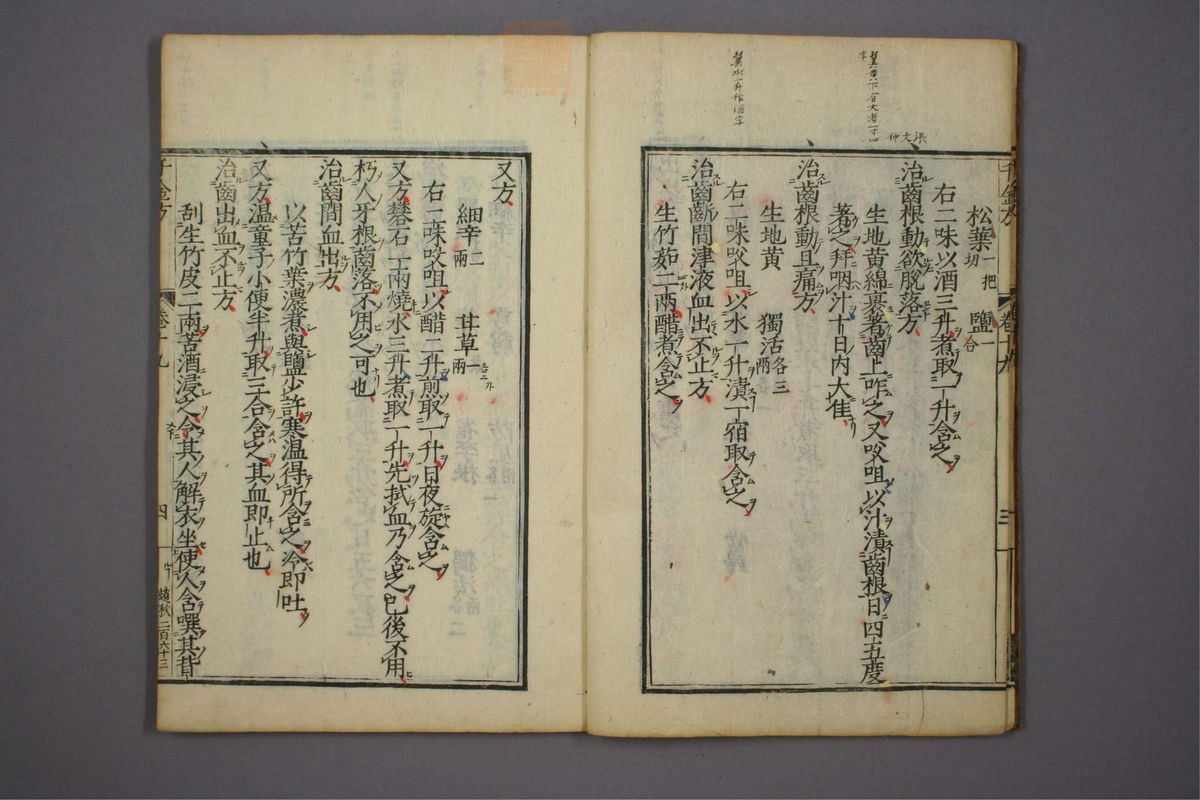 松葉一把切 鹽一合
右二味以酒三升煮取一升含之
治齒根動欲脫落方
生地黃綿裹著齒上咋之又㕮咀以汁漬齒根日四五度
著之并咽汁十日內大佳
治齒根動且痛方
生地黃 獨活各三兩
右二味㕮咀以水一升漬一宿取含之
治齒齗間津液血出不止方
生竹茹二兩醋煮含之
又方
細辛二兩 甘草一兩
右二味㕮咀以醋二升煎取一升日夜旋含之
又方礬石一兩燒水三升煮取一升先拭血乃含之已後不用
朽人牙根齒落不用之可也
治齒間血出方
以苦竹葉濃煮與鹽少許寒溫得所含之冷即吐
又方溫童子小便半升取三合含之其血即止也
治齒出血不止方
刮生竹皮二兩苦酒浸之令其人解衣坐使人含噀其背
千金方 卷十九 三
千金方 卷十九 四